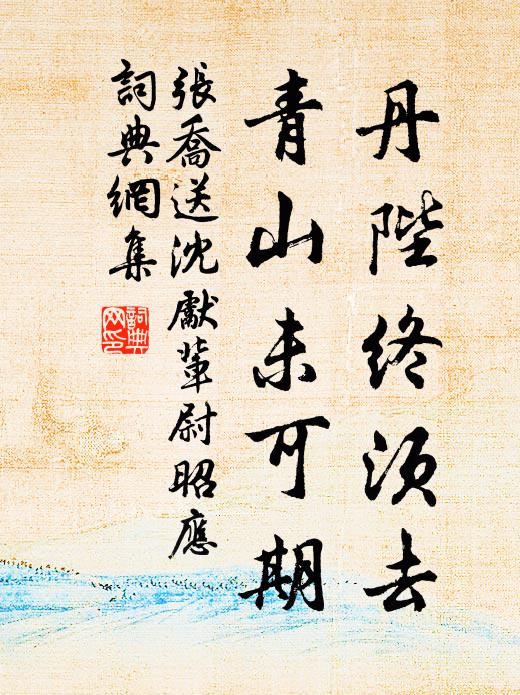 丹陛終須去
青山未可期
張喬送沈獻輩尉昭應
詞典網集
詞典网印